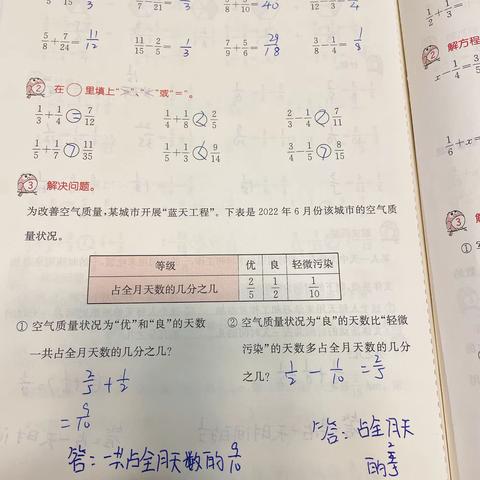 5/8 + 7/24 = 11/12
11/15 - 2/5 = 1/3
7/9 + 5/6 = 29/18
3/8 - 1/4 = 1/8
1/2 + 1/3 =
② 在○里填上“>”“<”或“=”。
② 解方程
1/3 + 1/4 = 7/12
1/4 + 1/8 < 2/5
2/3 - 1/4 < 7/11
x - 1/4 = 3/5
1/5 + 1/7 > 11/35
1/5 + 1/3 < 9/14
3/4 - 1/5 > 8/15
1/6 + x =
③ 解决问题。
为改善空气质量,某城市开展“蓝天工程”。下表是 2022 年 6 月份该城市的空气质
量状况。
等级 优 良 轻微污染
占全月天数的几分之几 2/5 1/2 1/10
① 空气质量状况为“优”和“良”的天数
一共占全月天数的几分之几?
2/5 + 1/2
= 9/10
答:一共占全月天数的 9/10
② 空气质量状况为“良”的天数比“轻微
污染”的天数多占全月天数的几分
之几? 1/2 - 1/10 = 2/5
答:占全月天
的 2/5